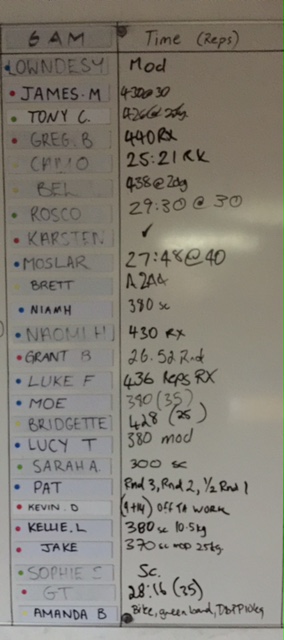 6 AM Time (Reps)
LOWNDESY Mod
JAMES.M 430@30
TONY C. 426@ 20kg
GREG.B 440 RX
25:21 RX
BEL 438@20kg
ROSCO 29:30 @ 30
KARSTEN ✓
MOSLAR 27:48@40
BRETT
NIAMH 380 sc
NAOMI H 430 RX
GRANT B 26.52 Rnd
LUKE F 436 Reps RX
MOE 390 (35)
BRIDGETTE 428 (25)
LUCY T 380 mod
SARAH A. 300 sc
PAT Rnd 3, Rnd 2, 1/2 Rnd 1
KEVIN.D OFF TO WORK
KELLIE.L 380 sc 10.5kg
JAKE 370 sc mod 25kg
SOPHIE S Sc.
GT 28:16 (35)
AMANDA B Bike, green band,